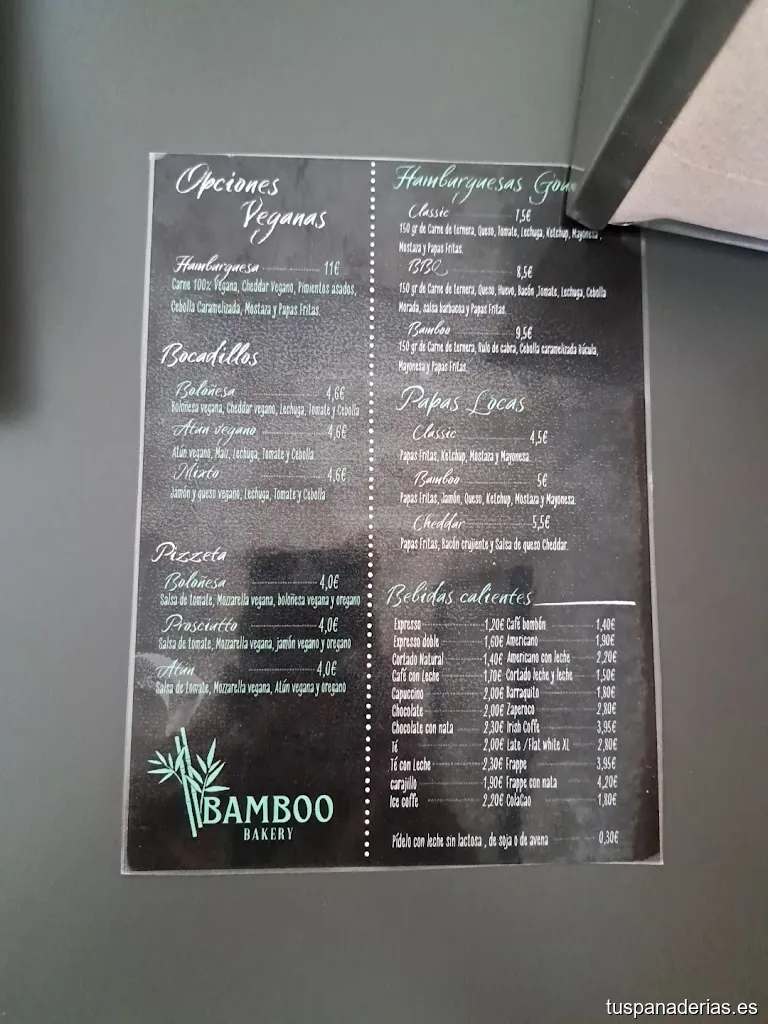 Opciones
Veganas
Hamburguesa 11€
Carne 100% Vegana, Cheddar Vegano, Pimientos asados,
Cebolla Caramelizada, Mostaza y Papas Fritas.
Bocadillos
Boloñesa 4,6€
Boloñesa vegana, Cheddar vegano, Lechuga, Tomate y Cebolla
Atún vegano 4,6€
Atún vegano, Maíz, Lechuga, Tomate y Cebolla
Mixto 4,6€
Jamón y queso vegano, Lechuga, Tomate y Cebolla
Pizzeta
Boloñesa 4,0€
Salsa de tomate, Mozzarella vegana, boloñesa vegana y oregano
Prosciutto 4,0€
Salsa de tomate, Mozzarella vegana, jamón vegano y oregano
Atún 4,0€
Salsa de tomate, Mozzarella vegana, Atún vegano y oregano
BAMBOO
BAKERY
Hamburguesas
Classic 7,5€
150 gr de Carne de ternera, Queso, Tomate, Lechuga, Ketchup, Mayonesa,
Mostaza y Papas Fritas.
BBQ 8,5€
150 gr de Carne de ternera, Queso, Huevo, Bacón ,Tomate, Lechuga, Cebolla
Morada, salsa barbacoa y Papas Fritas.
Bamboo 9,5€
150 gr de Carne de ternera, Rulo de cabra, Cebolla caramelizada Rúcula,
Mayonesa y Papas Fritas.
Papas Locas
Classic 4,5€
Papas Fritas, Ketchup, Mostaza y Mayonesa.
Bamboo 5€
Papas Fritas, Jamón, Queso, Ketchup, Mostaza y Mayonesa.
Cheddar 5,5€
Papas Fritas, Bacón crujiente y Salsa de queso Cheddar.
Bebidas calientes
Espresso 1,20€ Café bombón 1,40€
Espresso doble 1,60€ Americano 1,90€
Cortado Natural 1,40€ Americano con leche 2,20€
Café con Leche 1,70€ Cortado leche y leche 1,50€
Capuccino 2,00€ Barraquito 1,80€
Chocolate 2,00€ Zaperoco 2,80€
Chocolate con nata 2,30€ Irish Coffe 3,95€
Té 2,00€ Late /Flat white XL 2,80€
Té con Leche 2,30€ Frappe 3,95€
carajillo 1,90€ Frappe con nata 4,20€
Ice coffe 2,20€ ColaCao 1,80€
Pídelo con leche sin lactosa , de soja o de avena 0,30€
tuspanaderias.es